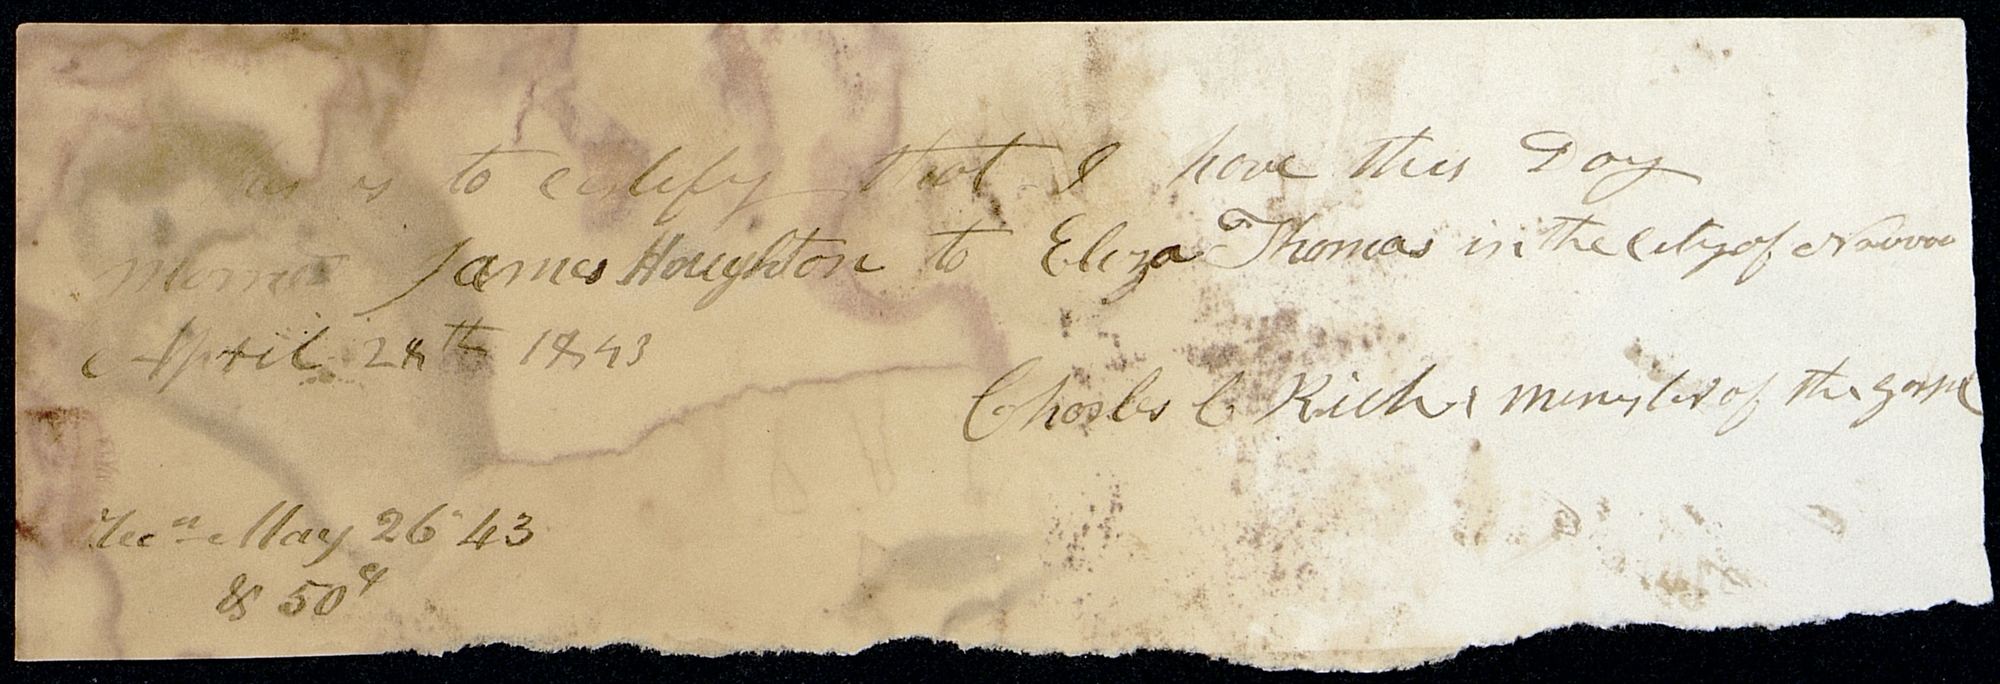 is to certify that I have this Day
Married James Houghton to Eliza Thomas in the City of Nauvoo
April 28th 1843
Charles C Rich minister of the gospel
Recd May 26 43
& 50c